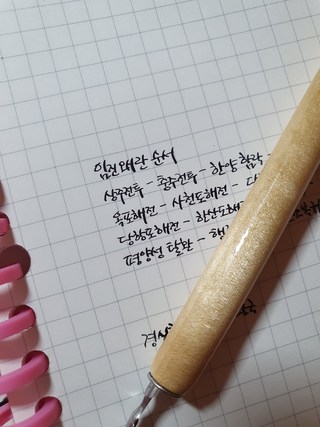 임진왜란 순서
상주전투 - 충주전투 - 한양 함락 -
옥포해전 - 사천포해전 -
당항포해전 - 한산도해
평양성 탈환 -